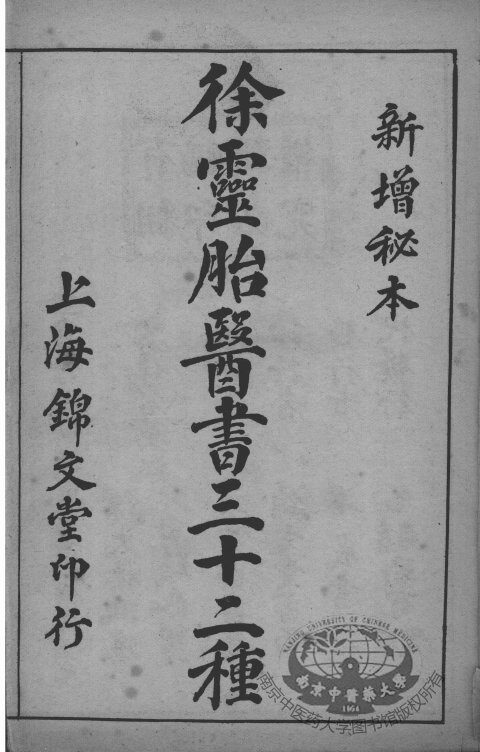 新增秘本
徐靈胎醫書三十二種
上海錦文堂印行
NANJING UNIVERSITY OF CHINESE MEDICINE
南京中醫藥大學
1954
南京中医药大学图书馆版权所有